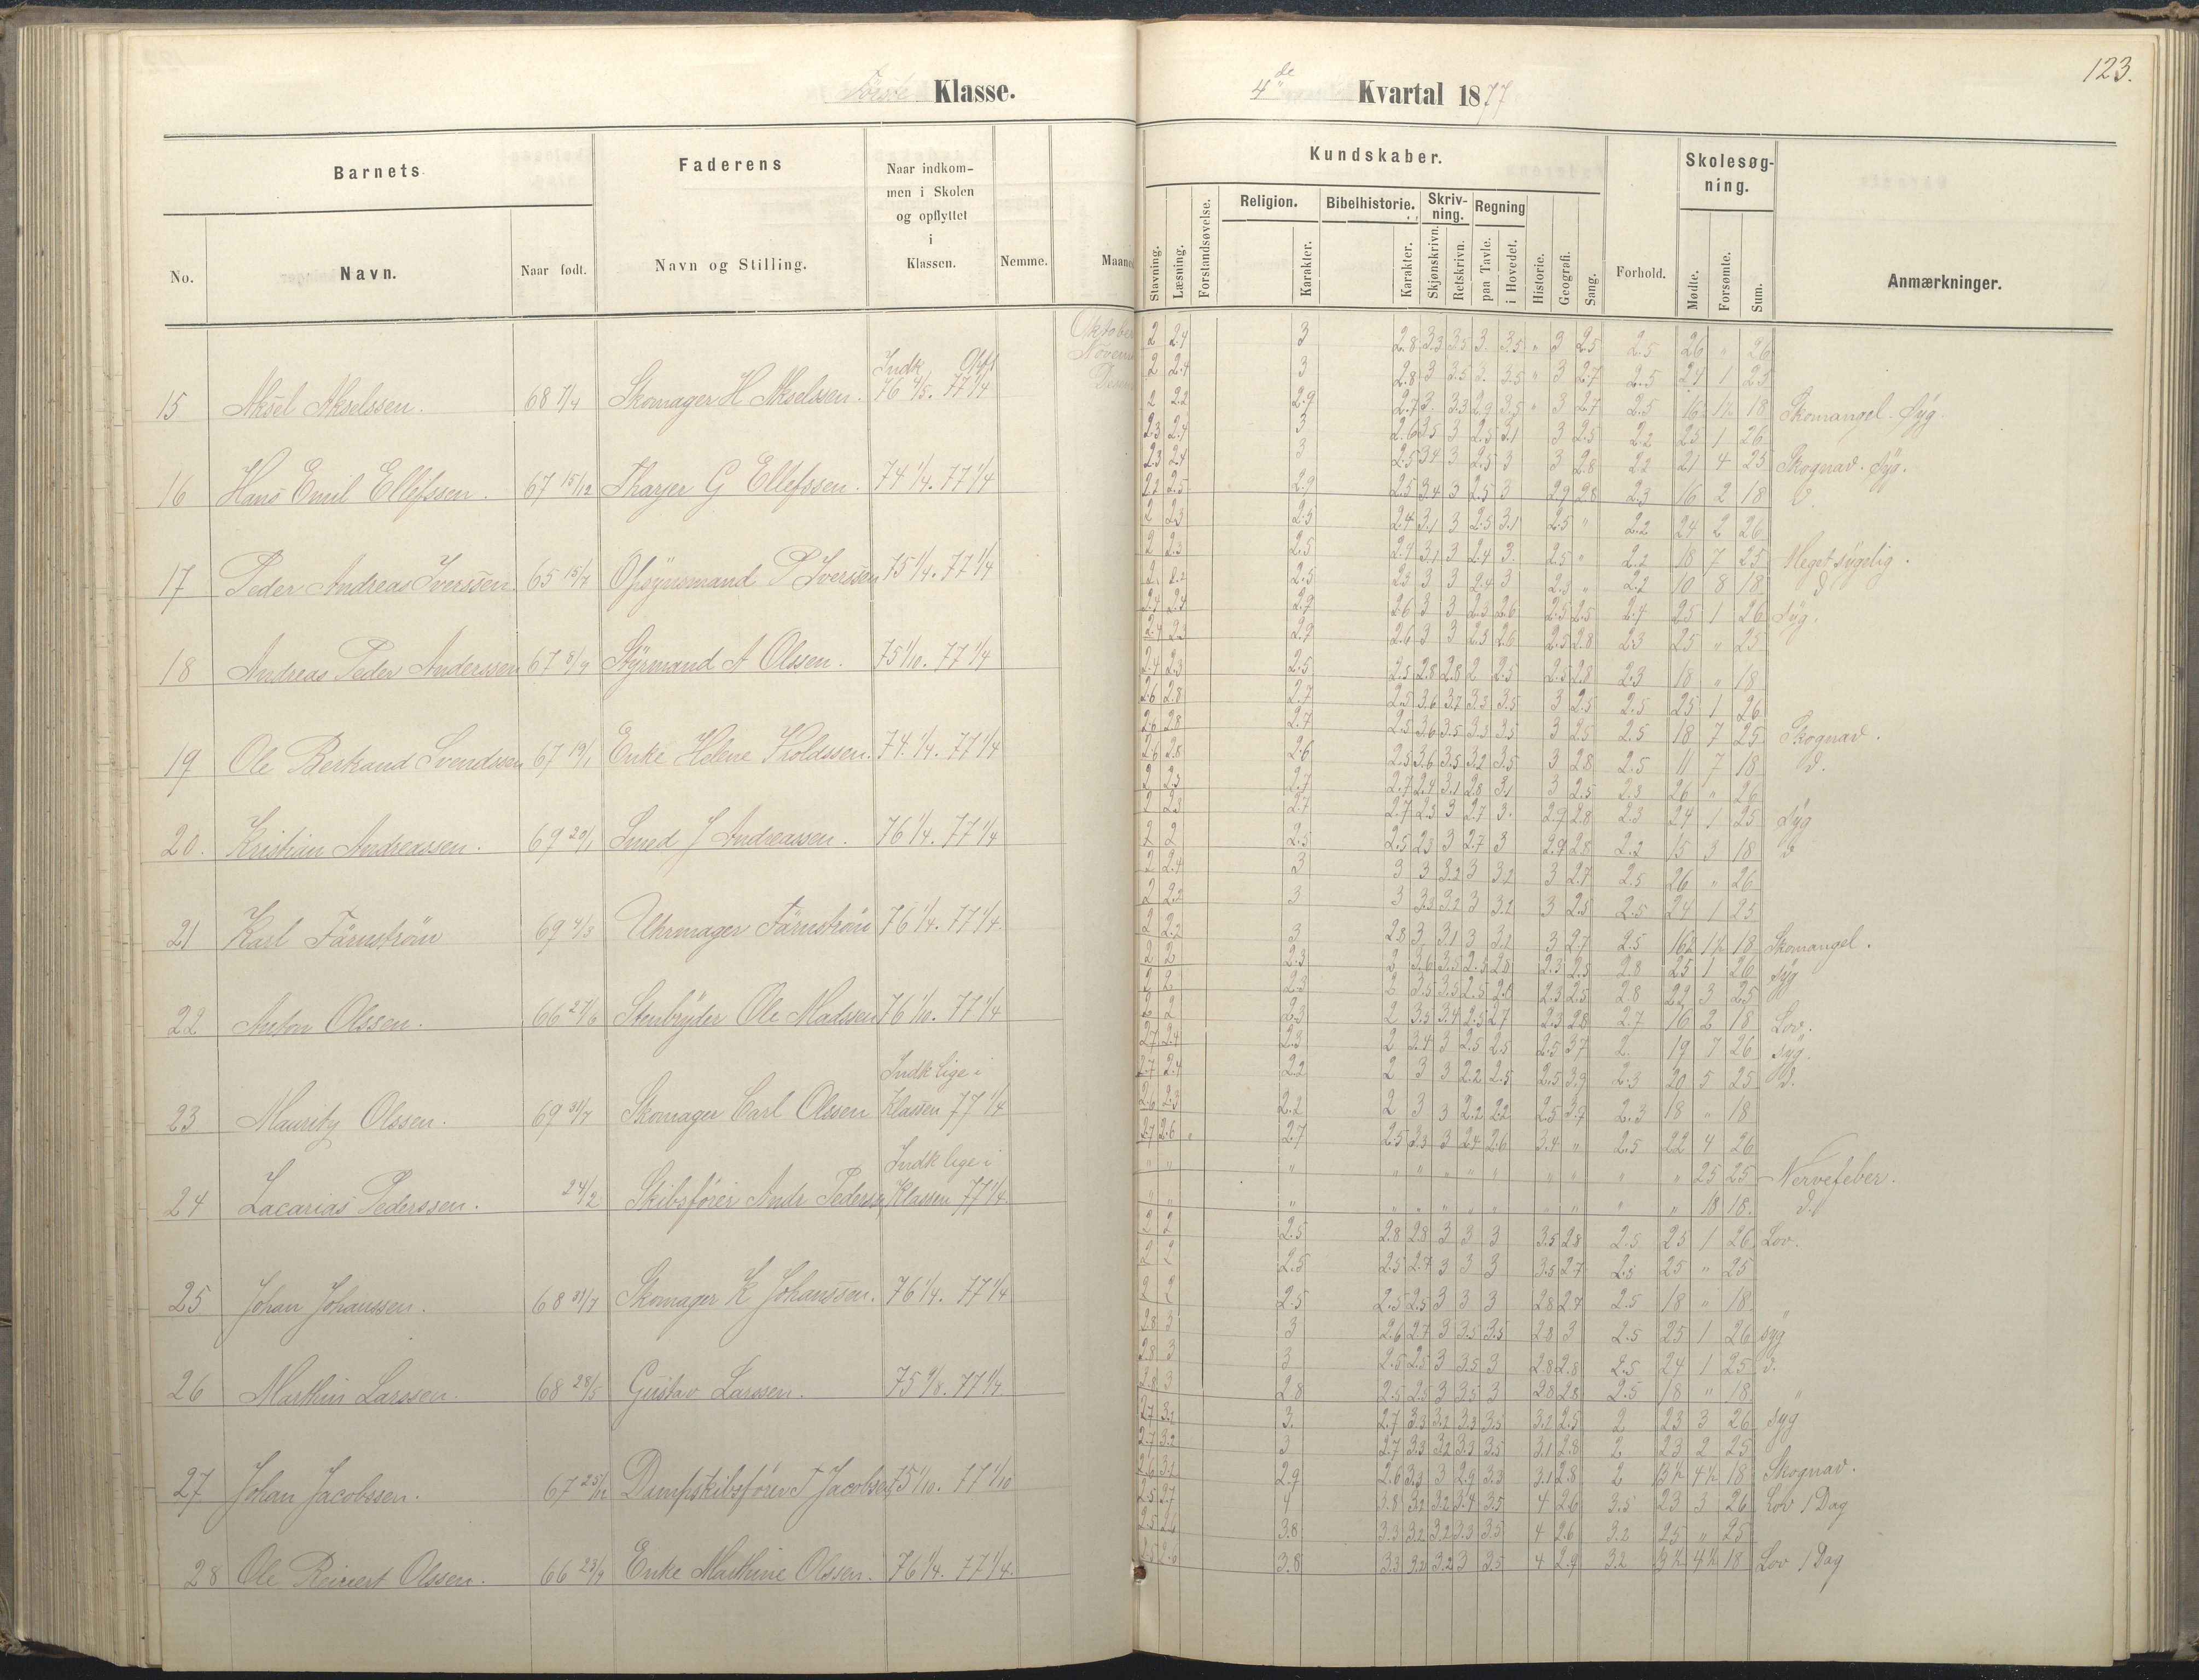 Første Klasse.
4de Kvartal 1877
123.
Barnets
Faderens
Naar indkommen i Skolen og opflyttet i Klassen.
Nemme.
Maaned
Kundskaber.
Forhold.
Skolesøgning.
Anmærkninger.
No.
Navn.
Naar født.
Navn og Stilling.
Stavning.
Læsning.
Forstandsøvelse.
Religion.
Karakter.
Bibelhistorie.
Karakter.
Skrivning.
Skjønskrivn.
Retskrivn.
Regning
paa Tavle.
i Hovedet.
Historie.
Geografi.
Sang.
Mødte.
Forsømte.
Sum.
Oktober
Novem
Desem
Indk Opfl
15 Aksel Akselssen. 68 7/4 Skomager H Akselssen. 76 4/5. 77 1/4
2 2.4 3 2.8 3.3 3.5 3. 3.5 " 3 2.5 2.5 26 " 26
2 2.4 3 2.8 3 3.5 3. 3.5 " 3 2.7 2.5 24 1 25
2 2.2 2.9 2.7 3. 3.3 2.9 3.5 " 3 2.7 2.5 16½ 1½ 18 Skomangel. Syg.
16 Hans Emil Ellefssen. 67 15/12 G Ellefssen. 74 1/4. 77 1/4
2.3 2.4 3 2.6 3.5 3 2.5 3.1 3 2.5 2.2 25 1 26
2.3 2.4 3 2.5 3.4 3 2.5 3 3 2.8 2.2 21 4 25 Skognad. Syg.
2.2 2.5 2.9 2.5 3.4 3 2.5 3 2.9 2.8 2.3 16 2 18
17 Peder Andreas Iverssen. 65 15/7 Opsynsmand P Iverssen 75 1/4. 77 1/4
2 2.3 2.5 2.4 3.1 3 2.5 3.1 2.5 " 2.2 24 2 26
2 2.3 2.5 2.4 3.1 3 2.4 3. 2.5 " 2.2 18 7 25 Meget sygelig.
2.5 2.3 3 3 2.4 3 2.3 " 2.2 10 8 18 d
18 Andreas Peder Anderssen 67 8/9 Styrmand A Olssen. 75 1/10. 77 1/4
2.4 2.4 2.9 2.6 3 3 2.3 2.6 2.5 2.5 2.4 25 1 26 Syg.
2.4 2.3 2.9 2.6 3 3 2.3 2.6 2.5 2.8 2.3 25 " 25
2.4 2.3 2.5 2.5 2.8 2.8 2 2.5 2.5 2.8 2.3 18 " 18
19 Ole Bertrand Svendssen 67 19/1 Enke Helene 74. 1/4. 77 1/4
2.6 2.8 2.7 2.5 3.6 3.7 3.3 3.5 3 2.5 2.5 25 1 26
2.6 2.8 2.7 2.5 3.6 3.5 3.3 3.5 3 2.5 2.5 18 7 25 Skognad.
2.6 2.8 2.6 2.5 3.6 3.5 3.2 3.5 3 2.8 2.5 11 7 18 d.
20. Kristian Andreassen. 69 20/1 Smed J Andreassen. 76 1/4. 77 1/4
2 2.3 2.7 2.7 2.4 3.1 2.8 3.1 3 2.5 2.3 26 " 26
2 2.3 2.7 2.7 2.3 3 2.7 3. 2.9 2.8 2.3 24 1 25 Syg
2 2 2.5 2.5 2.3 3 2.7 3 2.9 2.8 2.2 15 3 18 d
21 Karl Färnström 69 4/3 Uhrmager Färnström 76 1/4. 77 1/4
2 2.4 3 3 3 3.2 3 3.2 3 2.7 2.5 26 " 26
2 2.2 3 3 3.3 3.2 3 3.2 3 2.5 2.5 24 1 25
2 2.2 3 2.8 3 3.1 3 3.2 3 2.7 2.5 16½ 1½ 18 Skomangel.
22 Anton Olssen. 66 27/6 Stenbryder Ole Madssen 76 1/10. 77 1/4
2 2 2.3 2 3.6 3.5 2.5 2.8 2.3 2.5 2.8 25 1 26 Syg
2 2 2.3 2 3.5 3.5 2.5 2.6 2.3 2.5 2.8 22 3 25
2 2 2.3 2 3.5 3.4 2.5 2.7 2.3 2.8 2.7 16 2 18 Lov.
Indk lige i
23 Mauritz Olssen. 69 31/7 Skomager Carl Olssen Klassen 77 1/4
2.7 2.4 2.3 2 3.4 3 2.5 2.5 2.5 3.7 2. 19 7 26 Syg.
2.7 2.4 2.2 2 3 3 2.2 2.5 2.5 3.9 2.3 20 5 25 d.
2.6 2.3 2.2 2 3 3 2.2 2.2 2.5 3.9 2.3 18 " 18
Indk lige i
24 Zacarias Pederssen. 24/2 Skibsfører Andr Pederssen Klassen 77 1/4
2.7 2.6 " 2.7 2.5 3.3 3 2.4 2.6 3.4 " 2.5 22 4 26
" " " " " " " " " " " " 25 25 Nervefeber.
" " " " " " " " " " " " 18 18. d.
25 Johan Johanssen. 68 31/7 Skomager K Johanssen. 76 1/4. 77 1/4
2 2 2.5 2.8 2.8 3 3 3 3.5 2.8 2.5 25 1 26 Lov.
2 2 2.5 2.5 2.7 3 3 3 3.5 2.7 2.5 25 " 25
2 2 2.5 2.5 2.5 3 3 3 2.8 2.7 2.5 18 " 18 "
26 Marthin Larssen. 68 28/5 Gustav Larssen. 75 9/8. 77 1/4
2.8 3 3 2.6 2.7 3 3.5 3.5 2.8 3 2.5 25 1 26 Syg
2.8 3 3 2.5 2.5 3 3.5 3 2.8 2.8 2.5 24 1 25 d.
2.8 3 2.8 2.5 2.5 3 3.5 3 2.8 2.8 2.5 18 " 18 "
27 Johan Jacobssen. 67 25/12 Dampskibsfører T Jacobsen 75 1/10. 77 1/10
2.7 3.2 3. 2.7 3.3 3.2 3.3 3.5 3.2 2.5 2 23 3 26 Syg
2.7 3.2 3 2.7 3.3 3.2 3.3 3.5 3.1 2.8 2 23 2 25
2.6 3.1 2.9 2.6 3.3 3 2.9 3.3 3.1 2.8 2 13½ 4½ 18 Skognad.
28 Ole Reinert Olssen. 66 23/9 Enke Mathine Olssen. 76 1/4. 77 1/4.
2.5 2.7 4 3.8 3.2 3.2 3.4 3.5 4 2.6 3.5 23 3 26 Lov 1 Dag
2.5 2.6 3.8 3.3 3.2 3.2 3.3 3.5 4 2.6 3.2 25 " 25
2.5 2.6 3.8 3.3 3.2 3.2 3 3.5 4 2.9 3.2 13½ 4½ 18 Lov 1 Dag